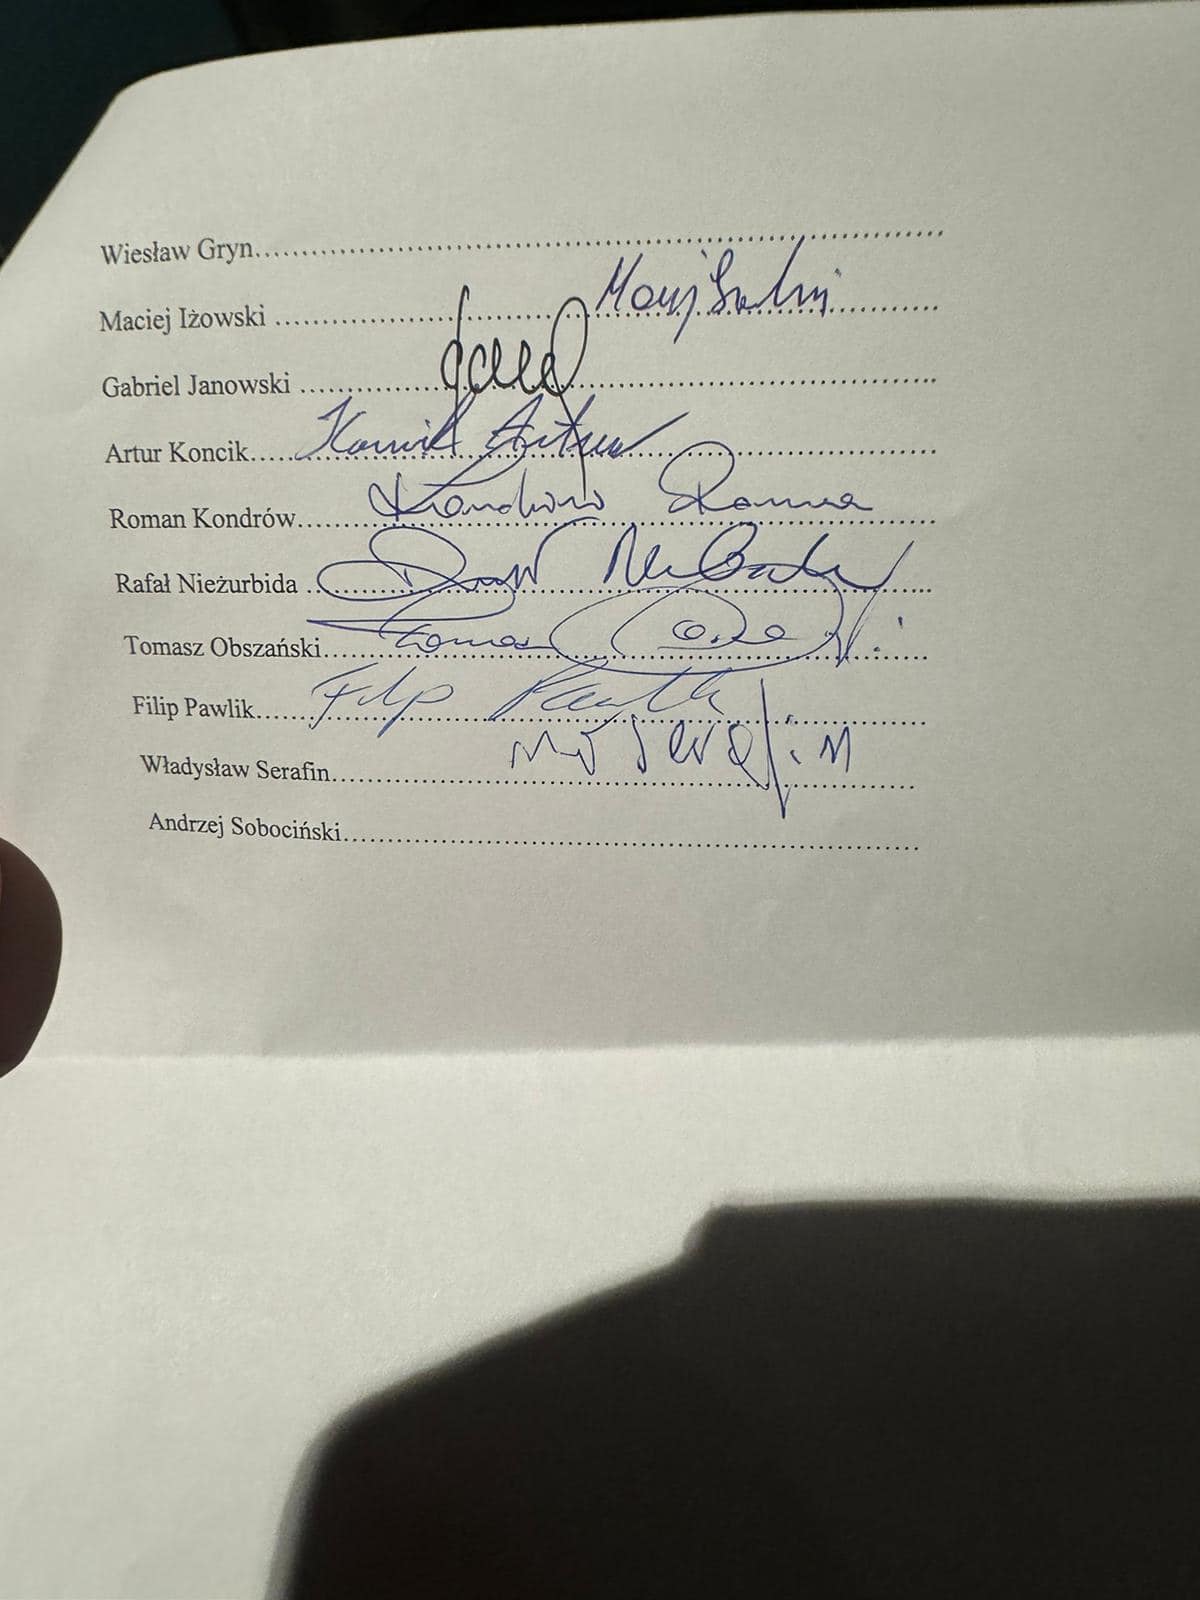 Wiesław Gryn........................................................................
Maciej Iżowski ........................................................................
Gabriel Janowski ........................................................................
Artur Koncik..... Koncik Artur
Roman Kondrów........ Kondrów Roman
Rafał Nieżurbida ........................................................................
Tomasz Obszański..... Tomasz
Filip Pawlik....... Filip Pawlik
Władysław Serafin........ Serafin
Andrzej Sobociński........................................................................